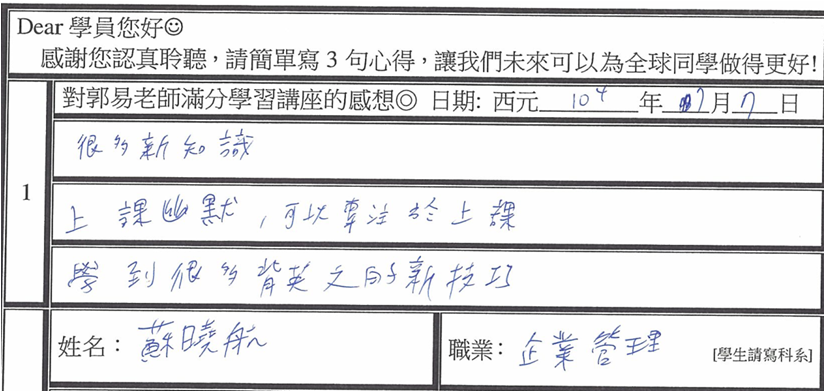 Dear 學員您好☺
感謝您認真聆聽，請簡單寫 3 句心得，讓我們未來可以為全球同學做得更好!
對郭易老師滿分學習講座的感想◎ 日期: 西元 104 年 7 月 7 日
很多新知識
1
上課幽默，可以專注於上課
學到很多背英文的新技巧
姓名： 蘇曉航
職業： 企業管理 [學生請寫科系]